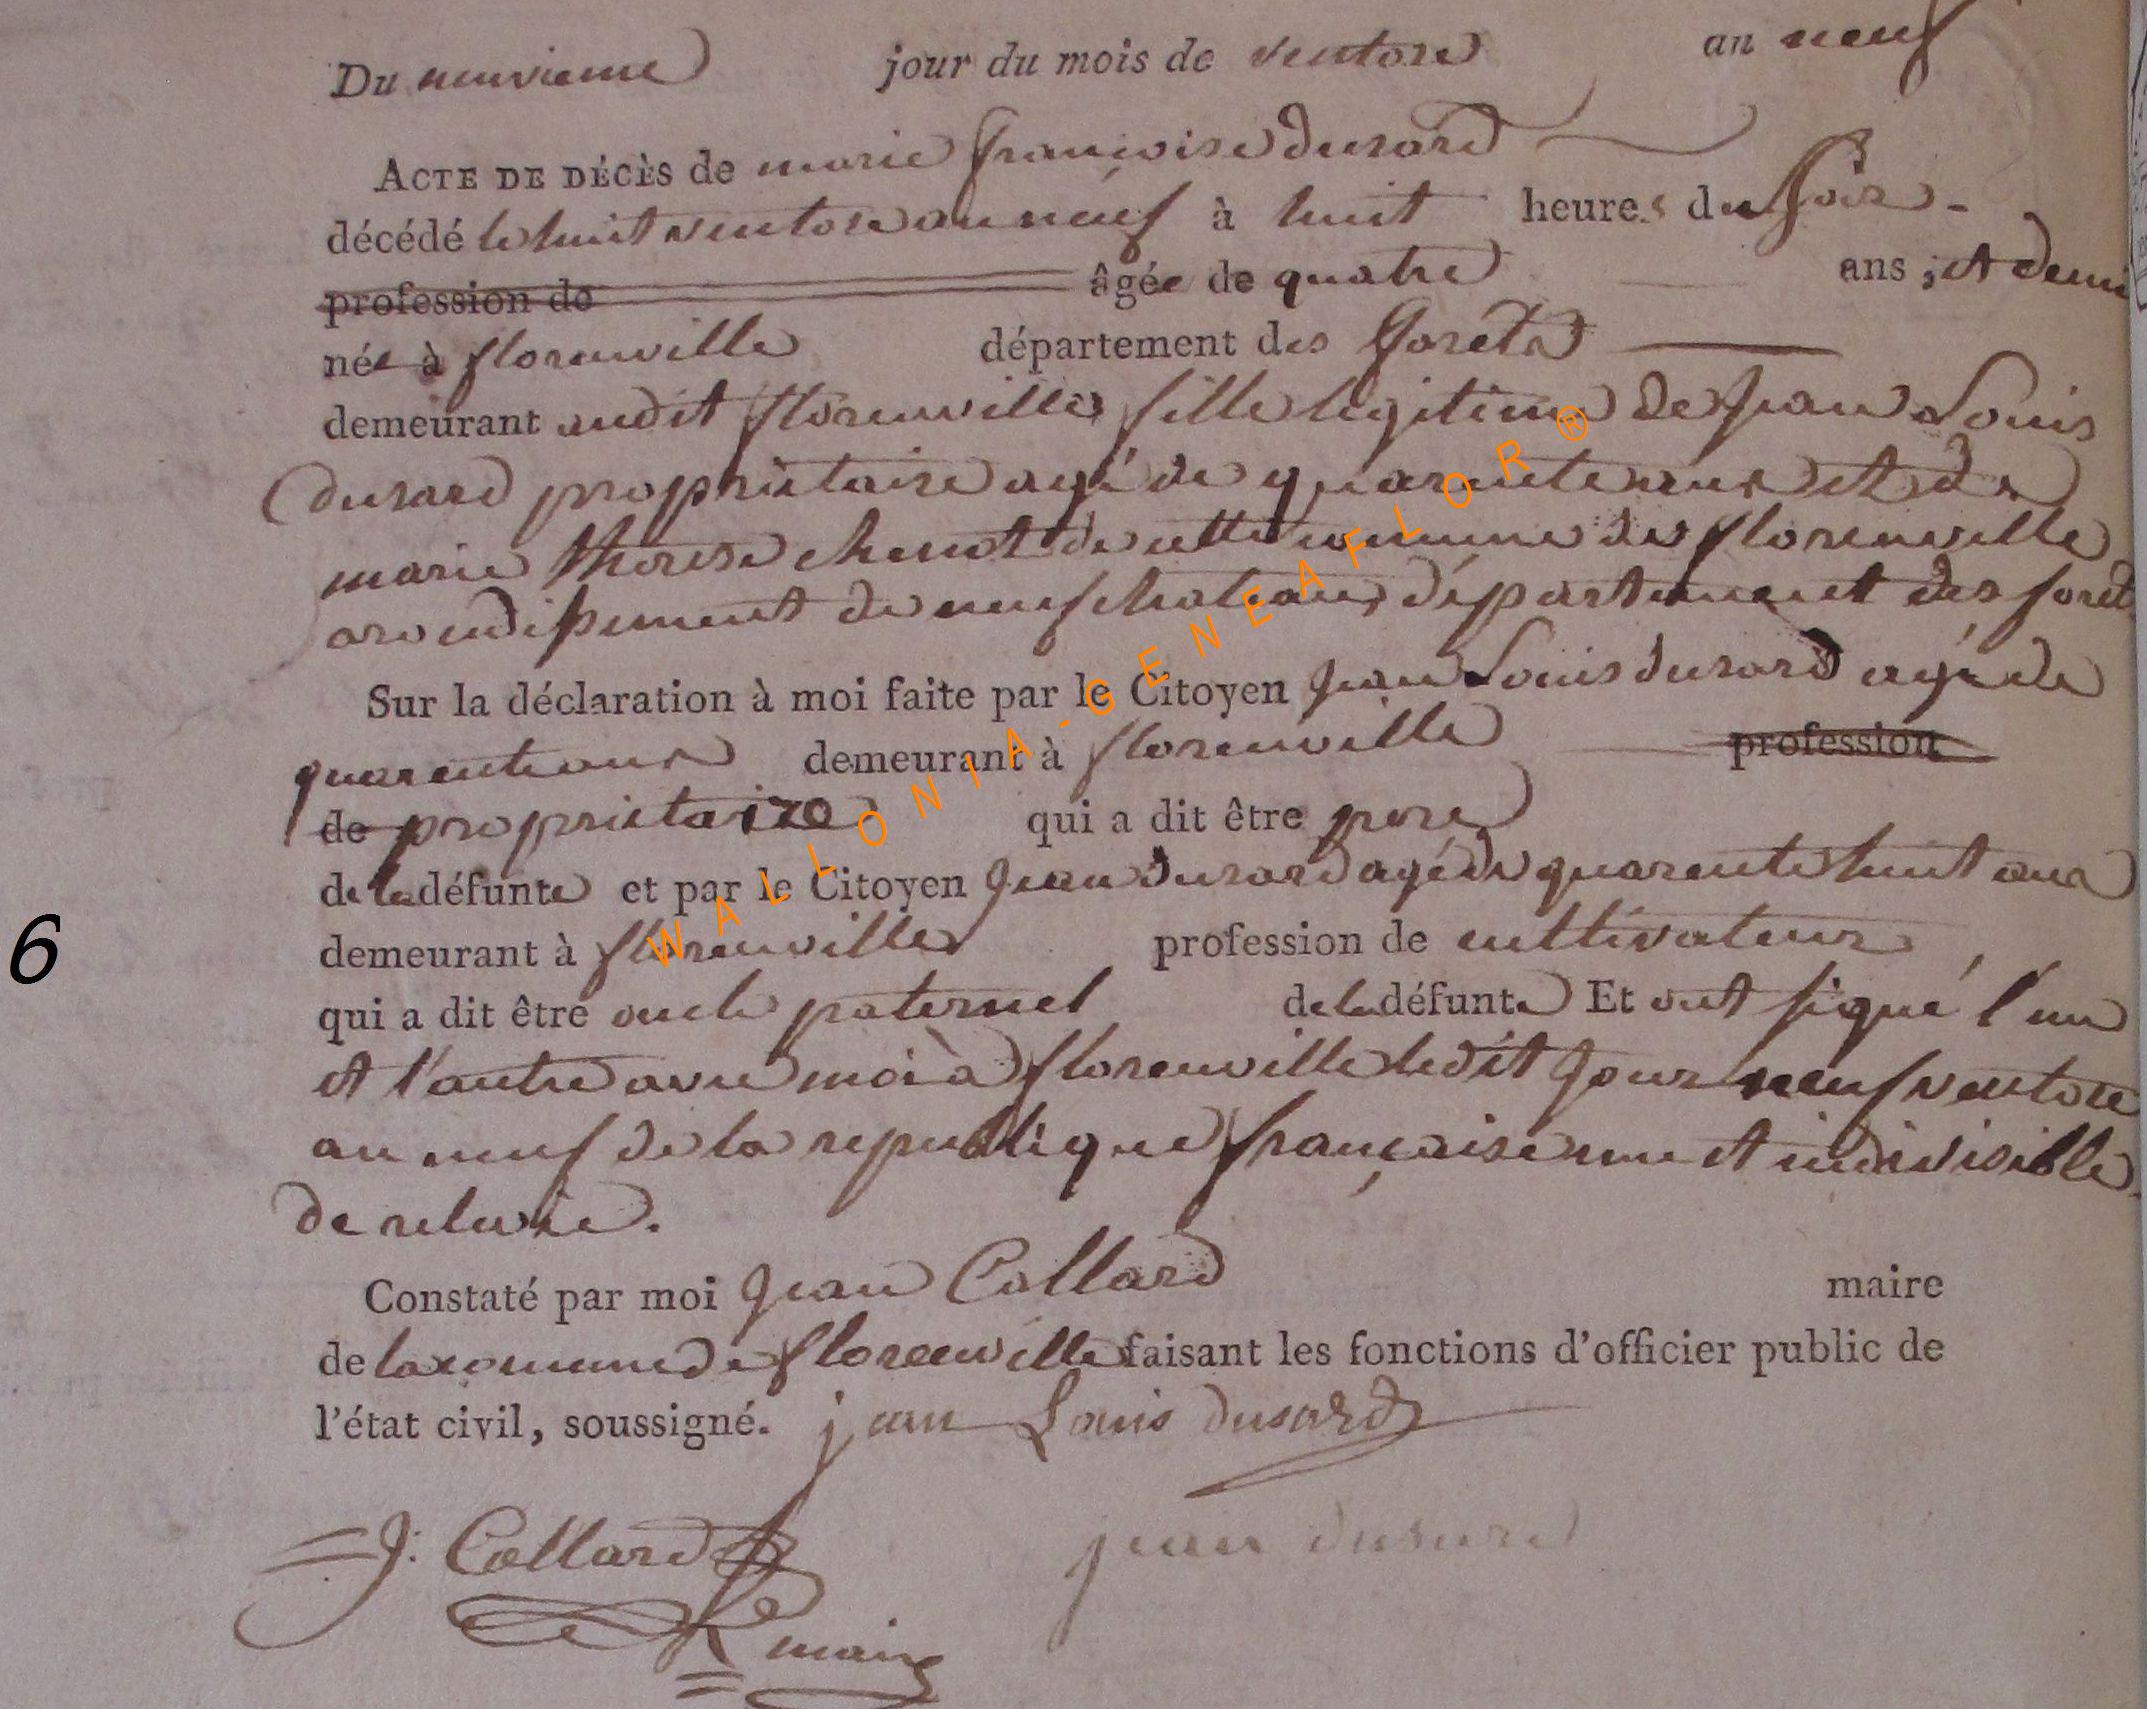 Du neuvieme jour du mois de ventose an neuf
ACTE DE DÉCÈS de marie françoise dusard
décédé le huit ventose an neuf à huit heures du soir.
profession de âgée de quatre ans, et demi
née à florenville département des forets
demeurant audit florenville, fille legitime de jean Louis
dusard proprietaire agé de quarente ans et de
marie therese chenot de cette commune de florenville
arondissement de neufchateau, département des foret
Sur la déclaration à moi faite par le Citoyen jean Louis dusard agé de
quarente ans demeurant à florenville profession
de proprietaire qui a dit être pere
de la défunte et par le Citoyen jean dusard agé de quarente huit ans
demeurant à florenville profession de cultivateur,
qui a dit être oncle paternel de la défunte Et ont signé l'un
et l'autre avec moi à florenville ledit jour neuf ventose
an neuf de la republique française une et indivisible.
de relevée.
Constaté par moi jean Collard maire
de la commune de florenville faisant les fonctions d'officier public de
l'état civil, soussigné. jean Louis dusard
J: Collard jean dusard
maire
6
WALLONIA-GENEAFLOR®